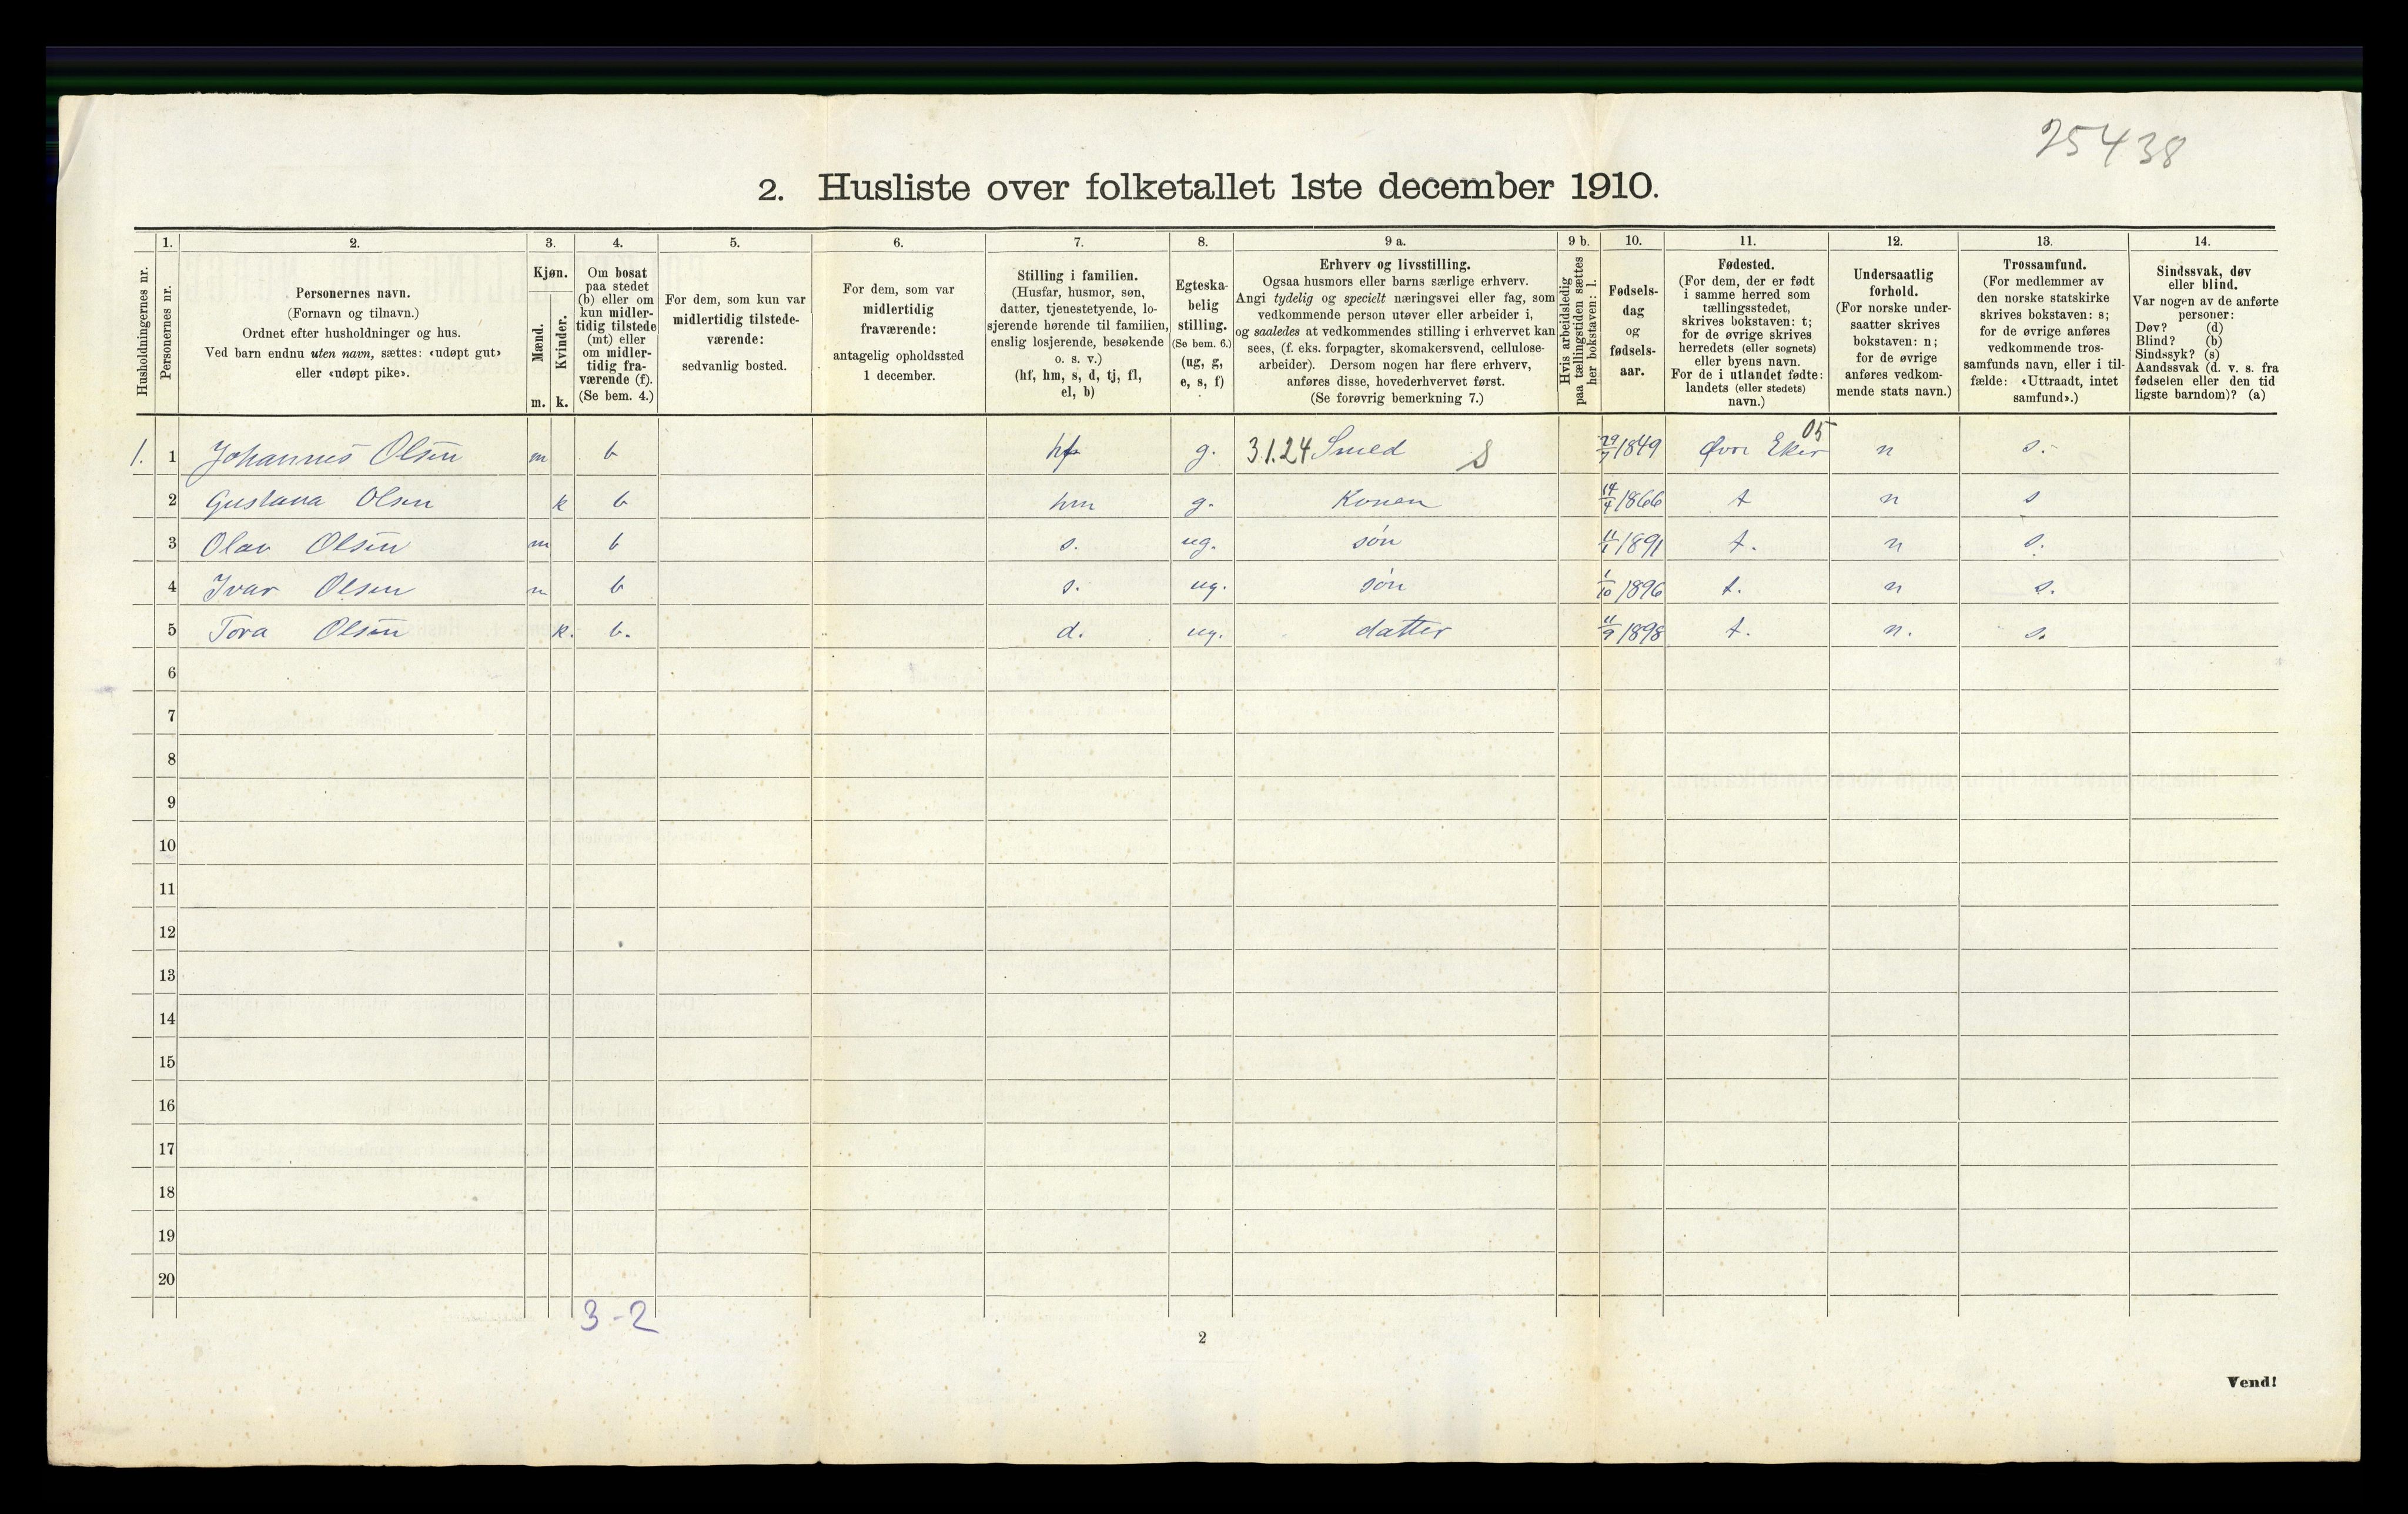 25438
2. Husliste over folketallet 1ste december 1910.
1. 2. 3. 4. 5. 6. 7. 8. 9 a. 9 b. 10. 11. 12. 13. 14.
Husholdningernes nr.
Personernes nr.
Personernes navn.
(Fornavn og tilnavn.)
Ordnet efter husholdninger og hus.
Ved barn endnu uten navn, sættes: «udøpt gut»
eller «udøpt pike».
Kjøn.
Mænd.
Kvinder.
m. k.
Om bosat
paa stedet
(b) eller om
kun midler-
tidig tilstede
(mt) eller
om midler-
tidig fra-
værende (f).
(Se bem. 4.)
For dem, som kun var
midlertidig tilstede-
værende:
sedvanlig bosted.
For dem, som var
midlertidig
fraværende:
antagelig opholdssted
1 december.
Stilling i familien.
(Husfar, husmor, søn,
datter, tjenestetyende, lo-
sjerende hørende til familien,
enslig losjerende, besøkende
o. s. v.)
(hf, hm, s, d, tj, fl,
el, b)
Egteska-
belig
stilling.
(Se bem. 6.)
(ug, g,
e, s, f)
Erhverv og livsstilling.
Ogsaa husmors eller barns særlige erhverv.
Angi tydelig og specielt næringsvei eller fag, som
vedkommende person utøver eller arbeider i,
og saaledes at vedkommendes stilling i erhvervet kan
sees, (f. eks. forpagter, skomakersvend, cellulose-
arbeider). Dersom nogen har flere erhverv,
anføres disse, hovederhvervet først.
(Se forøvrig bemerkning 7.)
Hvis arbeidsledig
paa tællingstiden sættes
her bokstaven: l.
Fødsels-
dag
og
fødsels-
aar.
Fødested.
(For dem, der er født
i samme herred som
tællingsstedet,
skrives bokstaven: t;
for de øvrige skrives
herredets (eller sognets)
eller byens navn.
For de i utlandet fødte:
landets (eller stedets)
navn.)
Undersaatlig
forhold.
(For norske under-
saatter skrives
bokstaven: n;
for de øvrige
anføres vedkom-
mende stats navn.)
Trossamfund.
(For medlemmer av
den norske statskirke
skrives bokstaven: s;
for de øvrige anføres
vedkommende tros-
samfunds navn, eller i til-
fælde: «Uttraadt, intet
samfund».)
Sindssvak, døv
eller blind.
Var nogen av de anførte
personer:
Døv? (d)
Blind? (b)
Sindssyk? (s)
Aandssvak (d. v. s. fra
fødselen eller den tid
ligste barndom)? (a)
1. 1 Johannes Olsen m b hf g. 3.1.24 Smed S 29/7 1849 Øvre Eker 05 n s.
2 Gustava Olsen k b hm g. Konen 14/4 1866 t n s
3 Olav Olsen m b s. ug. søn 11/1 1891 t. n s.
4 Ivar Olsen m b s. ug. søn 1/10 1896 t. n s.
5 Tora Olsen k. b. d. ug. datter 11/9 1898 t. n. s.
6
7
8
9
10
11
12
13
14
15
16
17
18
19
20
3-2
2
Vend!